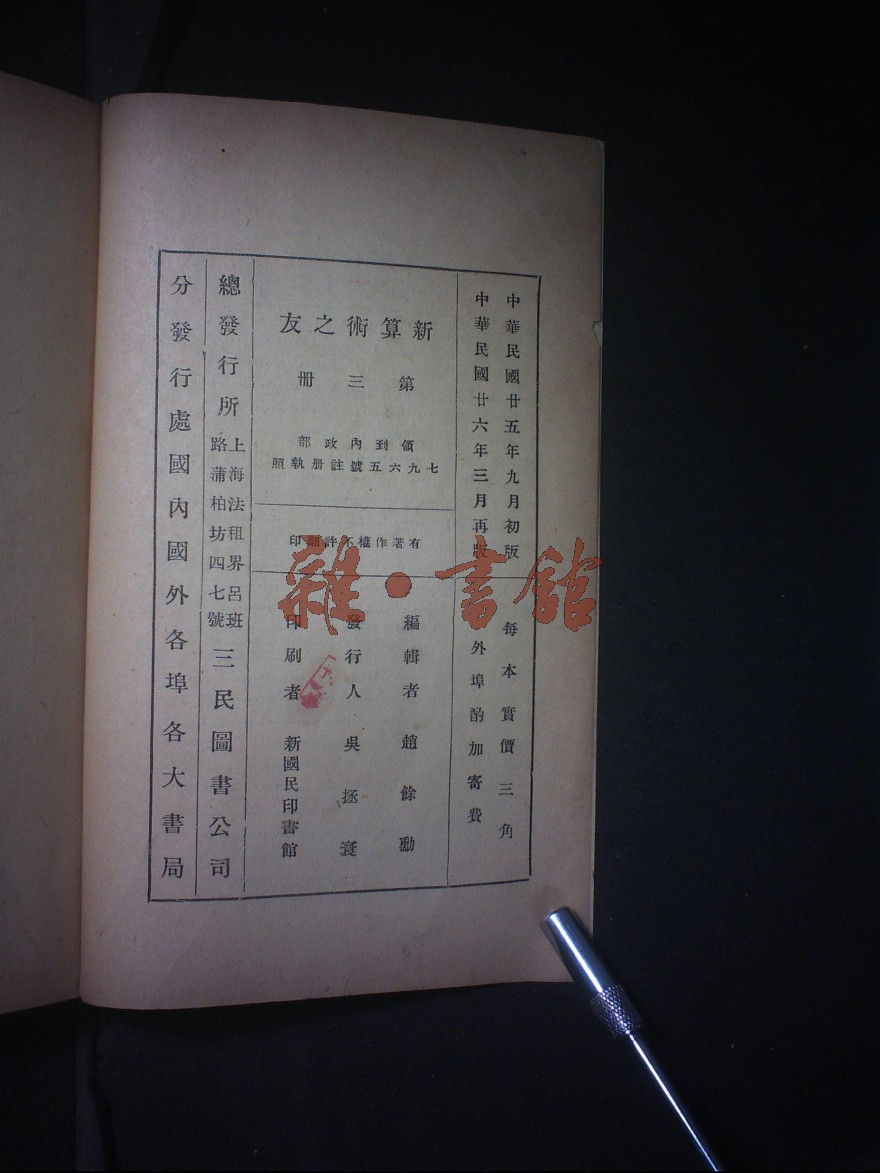 中華民國廿五年九月初版
中華民國廿六年三月再版
每本實價三角
外埠酌加寄費
新算術之友
第三册
領到內政部
七九六五號註册執照
有著作權不許翻印
編輯者 趙餘勳
發行人 吳拯寰
印刷者 新國民印書館
總發行所 上海法租界呂班
路蒲柏坊四七號 三民圖書公司
分發行處國內國外各埠各大書局
雜·書館